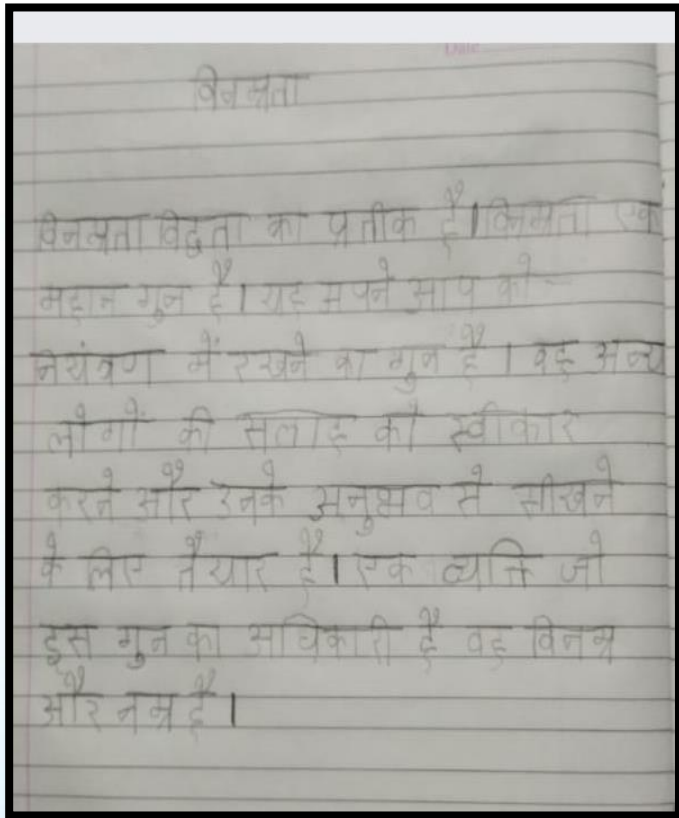 Date
विनम्रता
विनम्रता विद्वता का प्रतीक है। विनम्रता एक
महान गुन है। यह अपने आप को
नियंत्रण में रखने का गुन है। वह अन्य
लोगों की सलाह को स्वीकार
करने और उनके अनुभव से सीखने
के लिए तैयार है। एक व्यक्ति जो
इस गुन का अधिकारी है वह विनम्र
और नम्र है।